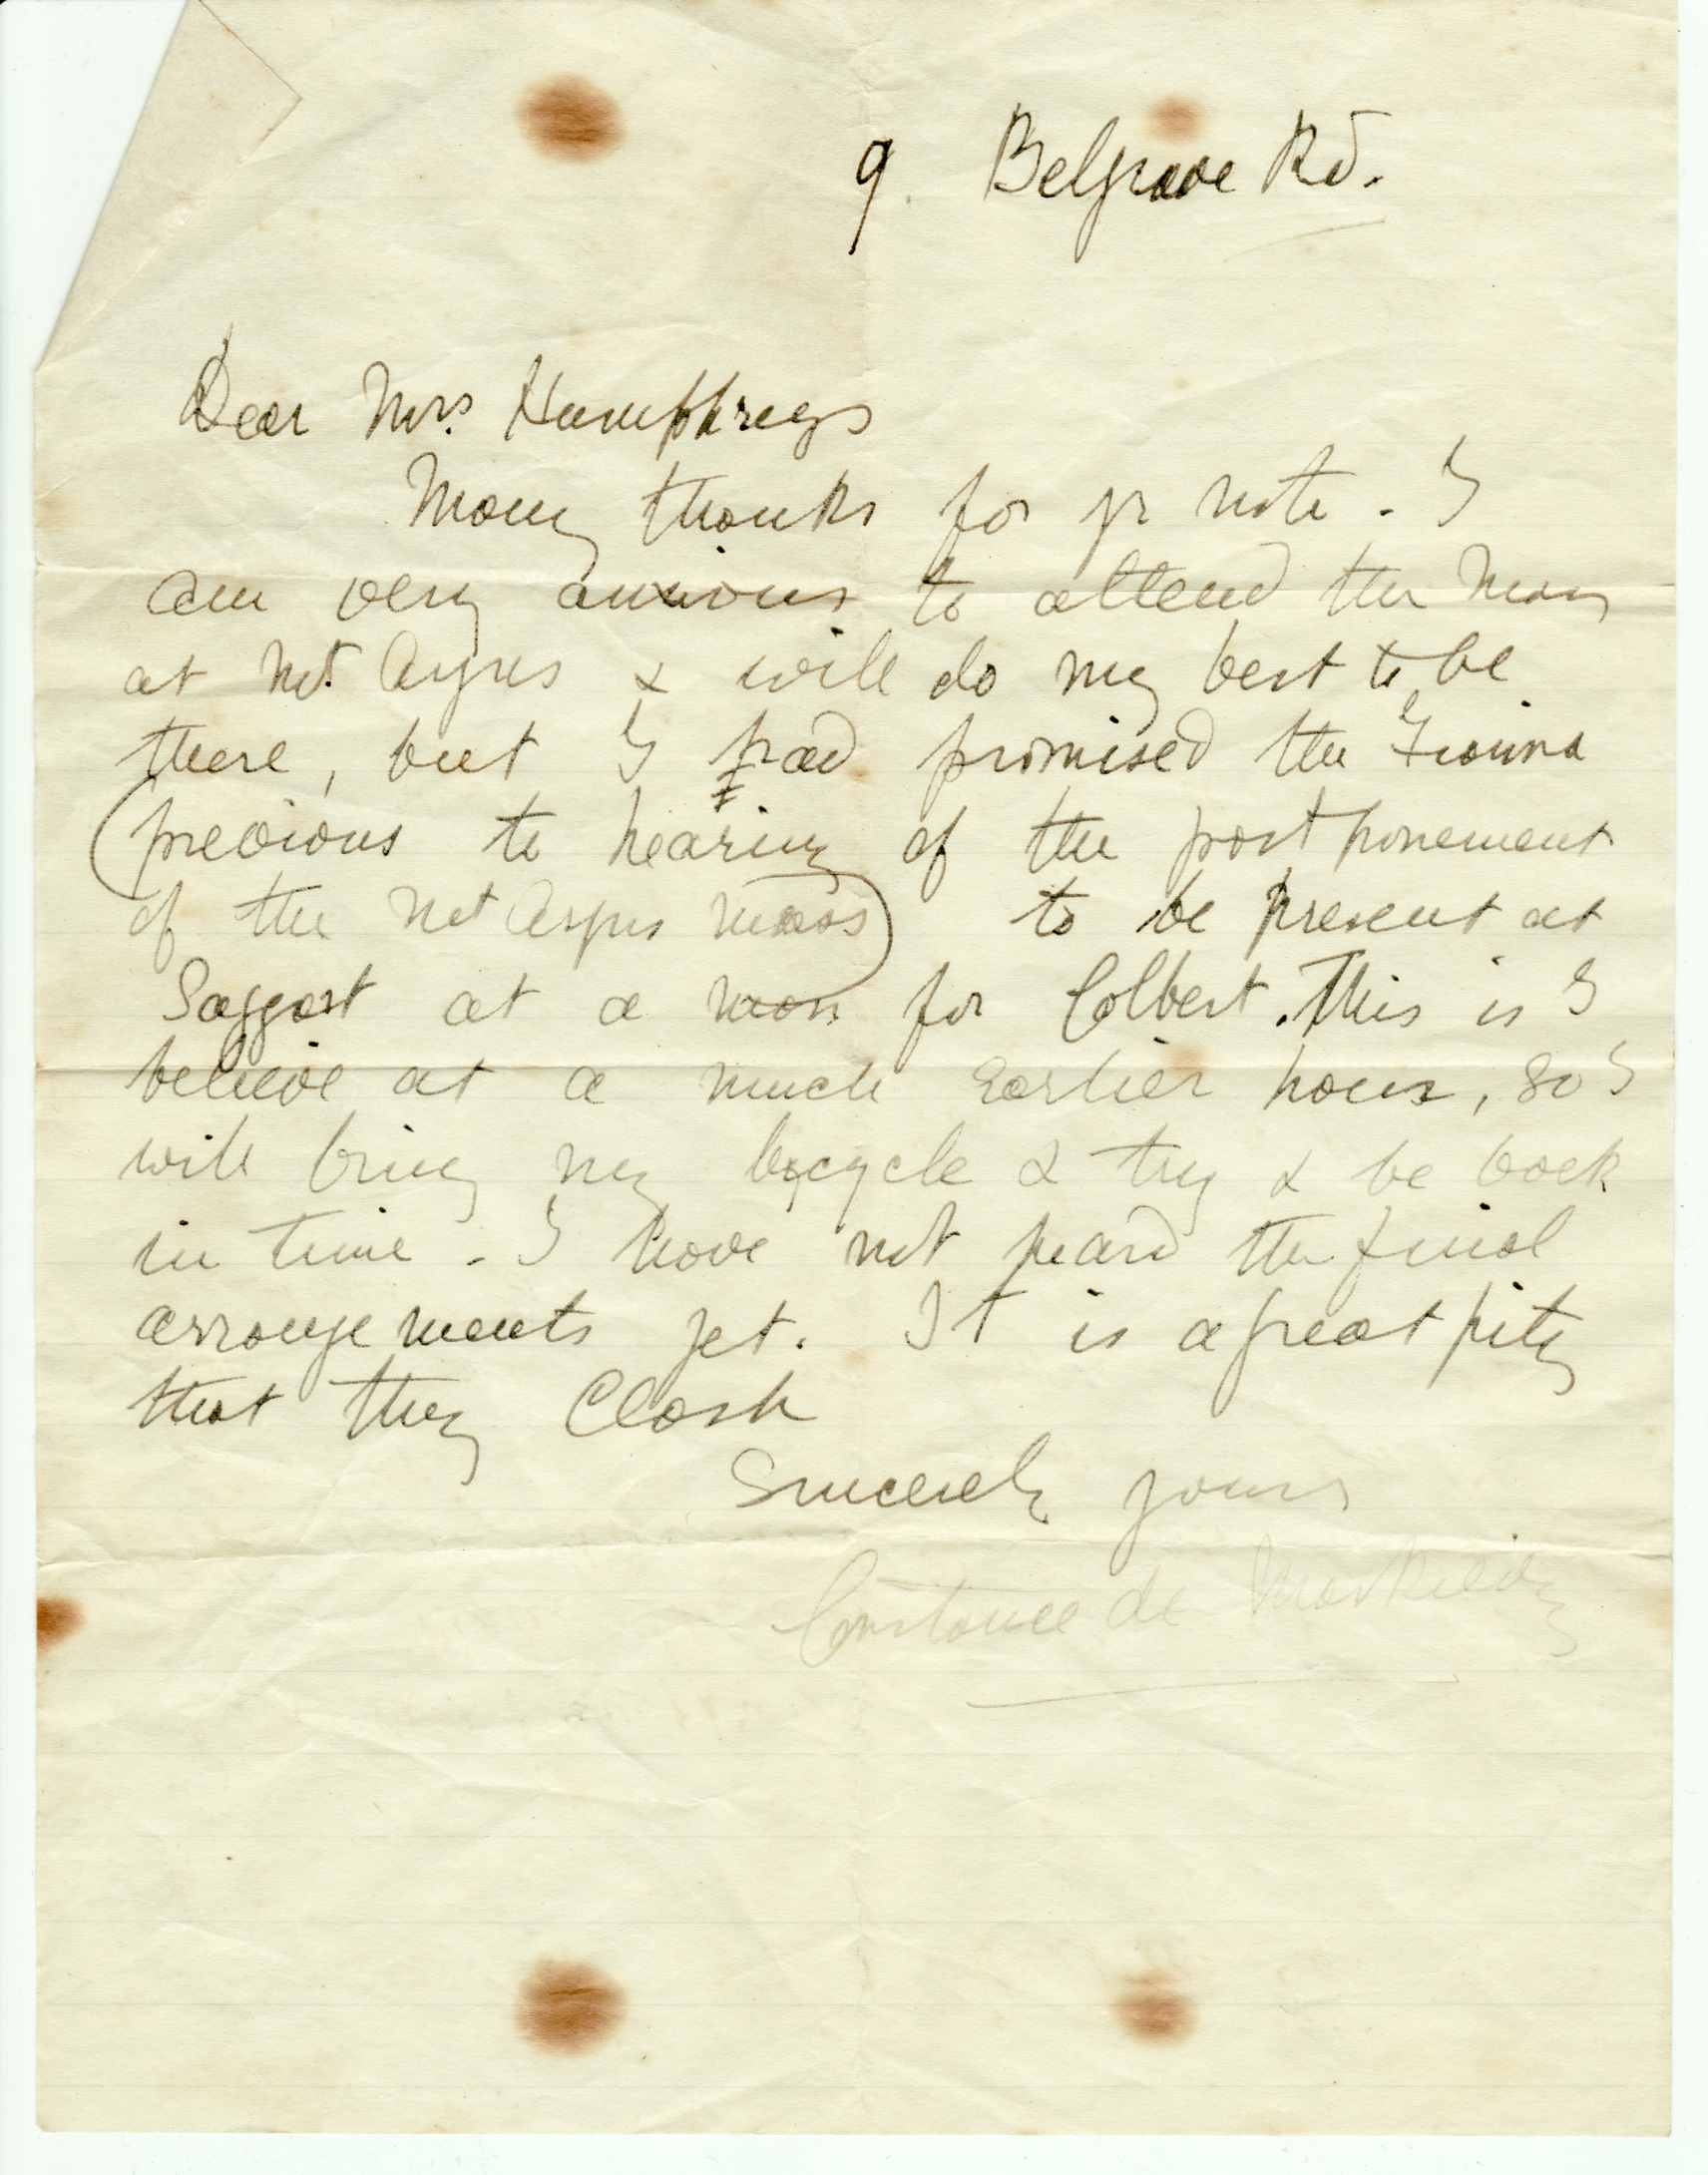 9. Belgrave Rd.
Dear Mrs. Humphreys
Many thanks for yr note. I
am very anxious to attend the Mass
at Mt. Argus & will do my best to be
there, but I had promised the Fianna
(previous to hearing of the postponement
of the Mt Argus mass) to be present at
Saggart at a mass for Colbert. This is I
believe at a much earlier hour, so I
will bring my bycycle & try & be back
in time. I have not heard the final
arrangements yet. It is a great pity
that they clash
Sincerely yours
Constance de Markievicz